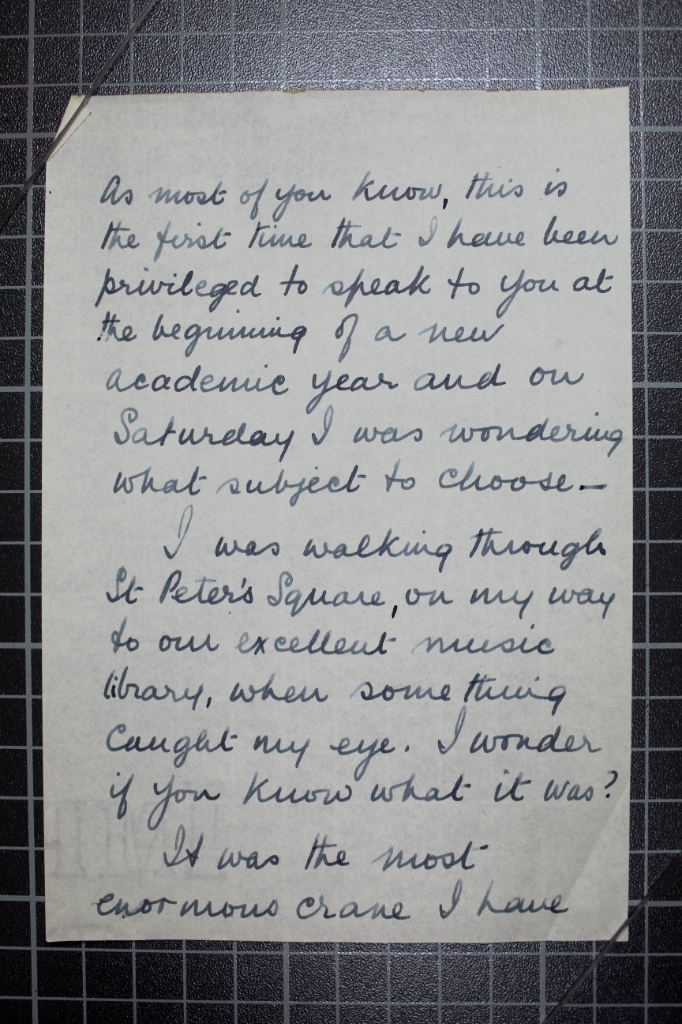 As most of you know, this is
the first time that I have been
privileged to speak to you at
the beginning of a new
academic year and on
Saturday I was wondering
what subject to choose. —
I was walking through
St Peter's Square, on my way
to our excellent music
library, when something
caught my eye. I wonder
if you know what it was?
It was the most
enormous crane I have